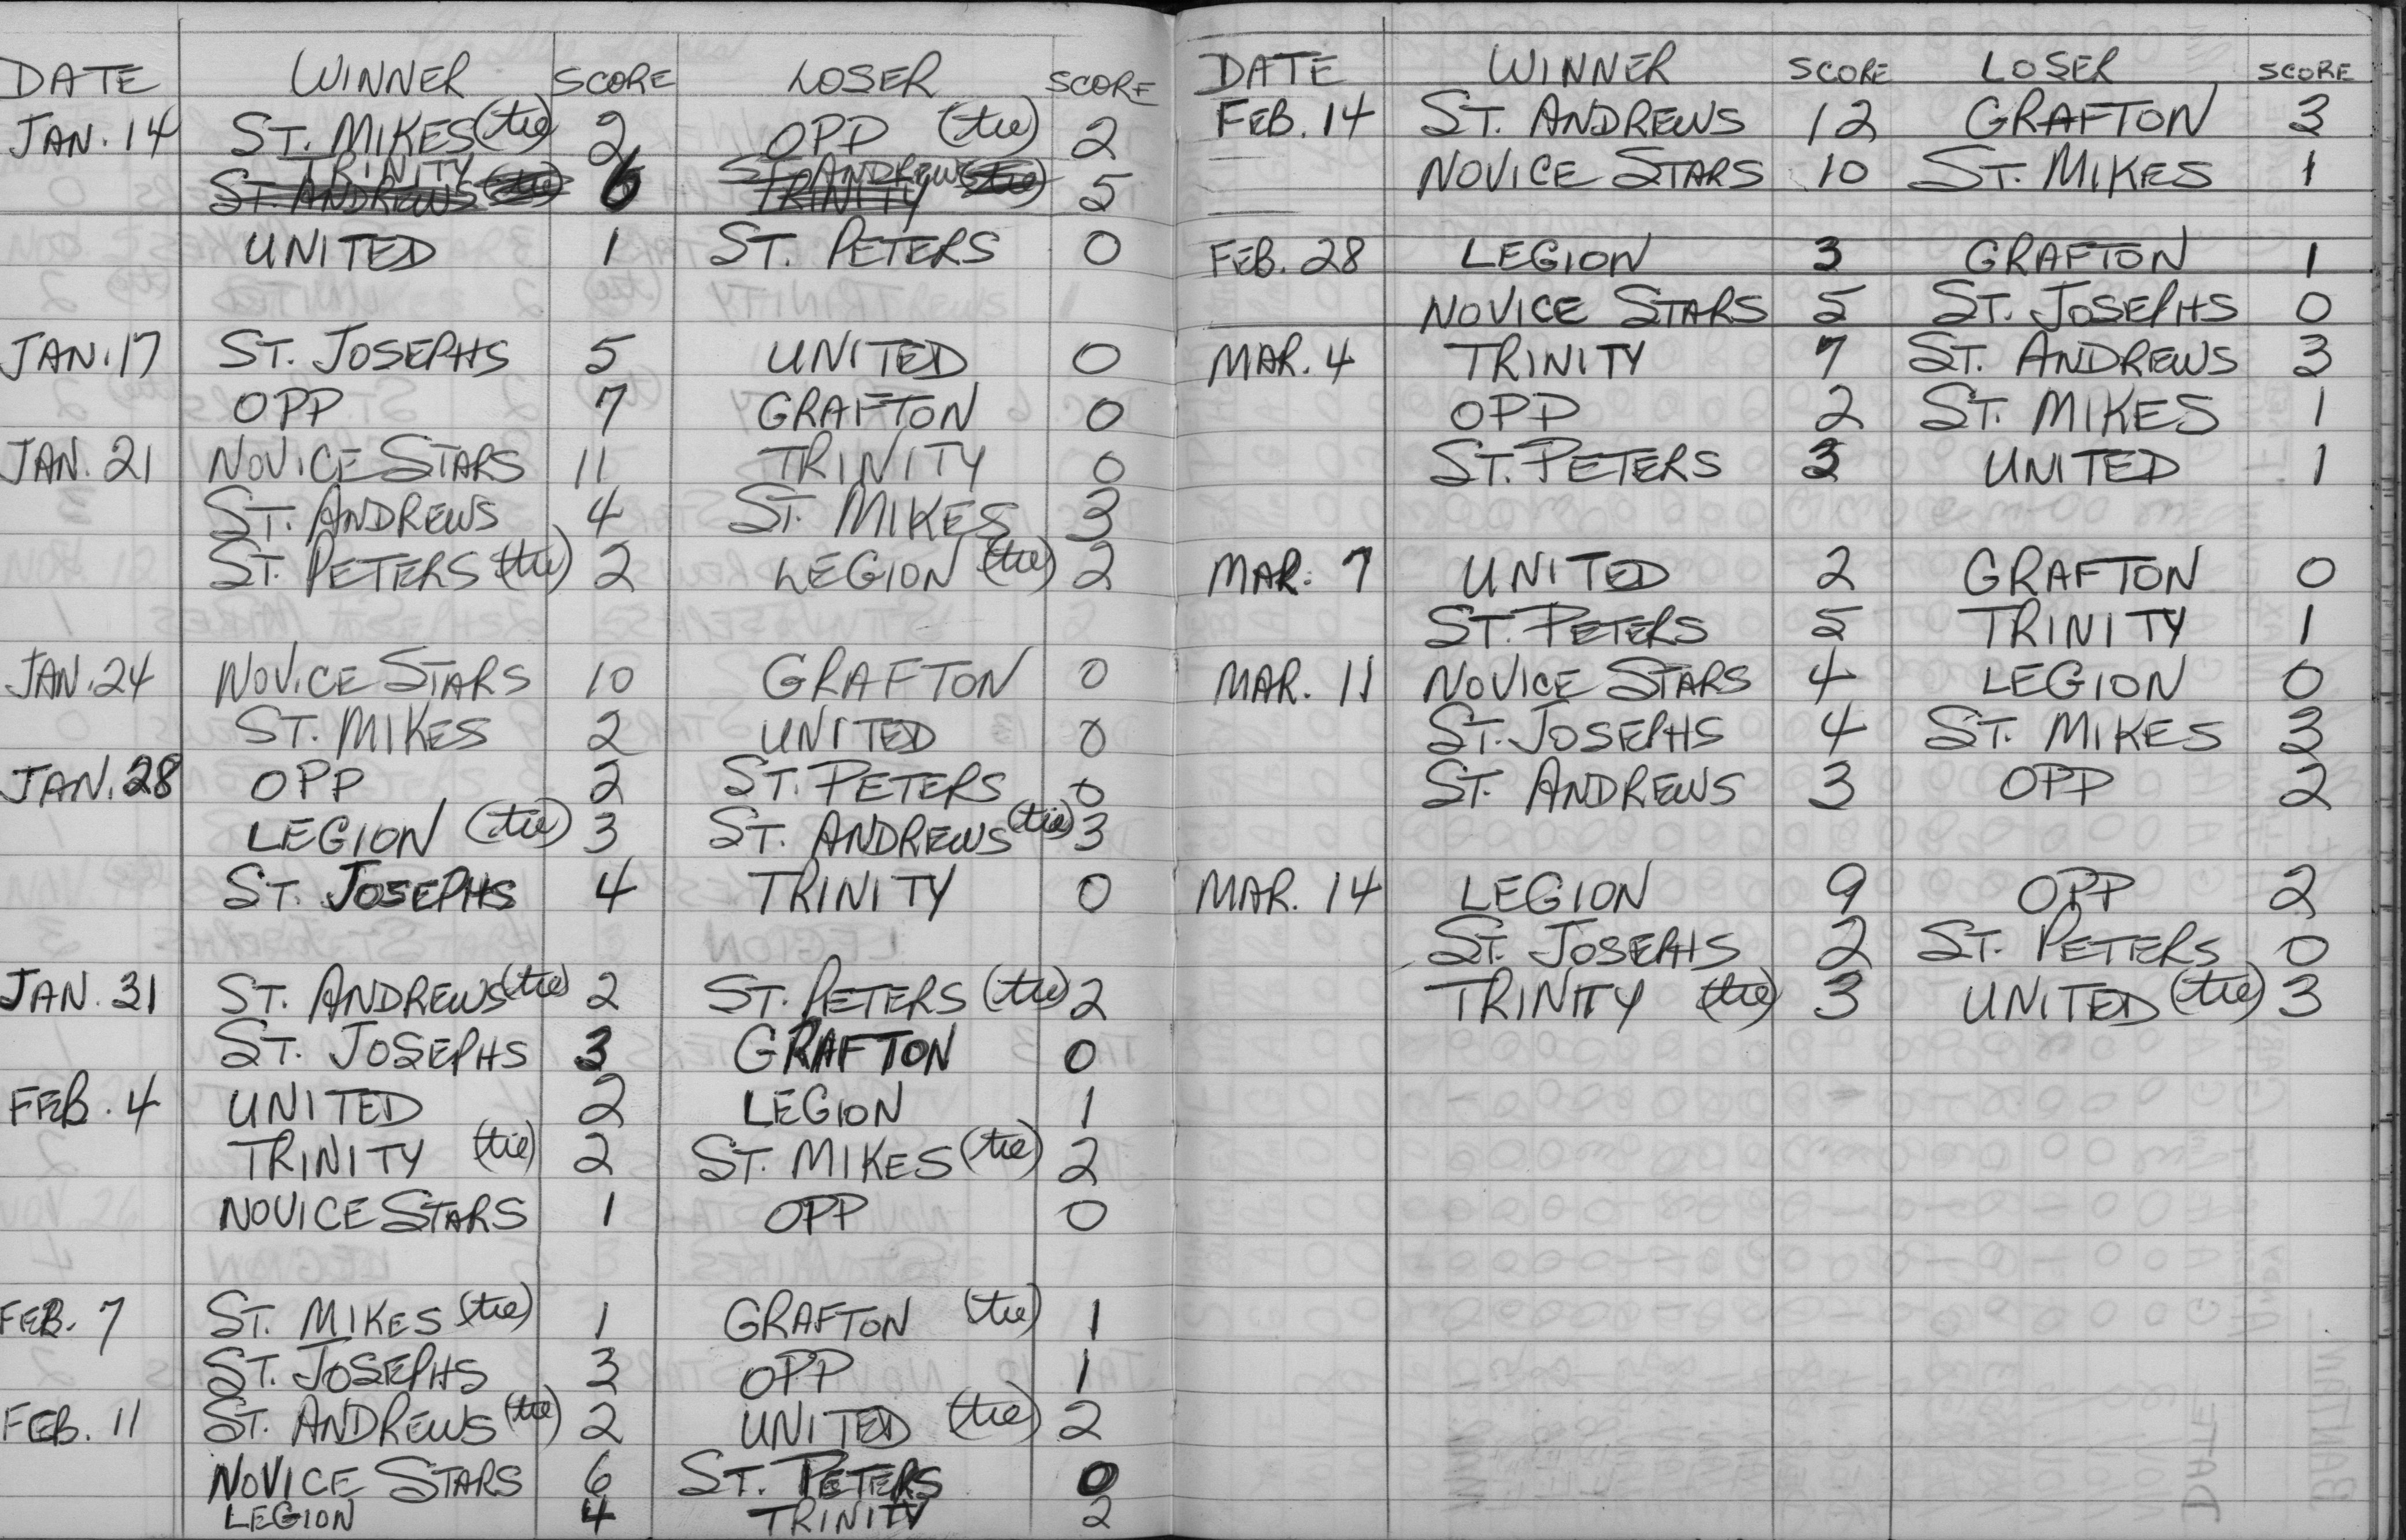 DATE WINNER SCORE LOSER SCORE
JAN. 14 ST. MIKES (tie) 2 OPP (tie) 2
TRINITY ST. ANDREWS
ST. ANDREWS (tie) 6 TRINITY (tie) 5
UNITED 1 ST. PETERS 0
JAN. 17 ST. JOSEPHS 5 UNITED 0
OPP 7 GRAFTON 0
JAN. 21 NOVICE STARS 11 TRINITY 0
ST. ANDREWS 4 ST. MIKES 3
ST. PETERS (tie) 2 LEGION (tie) 2
JAN. 24 NOVICE STARS 10 GRAFTON 0
ST. MIKES 2 UNITED 0
JAN. 28 OPP 2 ST. PETERS 0
LEGION (tie) 3 ST. ANDREWS (tie) 3
ST. JOSEPHS 4 TRINITY 0
JAN. 31 ST. ANDREWS (tie) 2 ST. PETERS (tie) 2
ST. JOSEPHS 3 GRAFTON 0
FEB. 4 UNITED 2 LEGION 1
TRINITY (tie) 2 ST. MIKES (tie) 2
NOVICE STARS 1 OPP 0
FEB. 7 ST. MIKES (tie) 1 GRAFTON (tie) 1
ST. JOSEPHS 3 OPP 1
FEB. 11 ST. ANDREWS (tie) 2 UNITED (tie) 2
NOVICE STARS 6 ST. PETERS 0
LEGION 4 TRINITY 2
DATE WINNER SCORE LOSER SCORE
FEB. 14 ST. ANDREWS 12 GRAFTON 3
NOVICE STARS 10 ST. MIKES 1
FEB. 28 LEGION 3 GRAFTON 1
NOVICE STARS 5 ST. JOSEPHS 0
MAR. 4 TRINITY 7 ST. ANDREWS 3
OPP 2 ST. MIKES 1
ST. PETERS 3 UNITED 1
MAR. 7 UNITED 2 GRAFTON 0
ST. PETERS 5 TRINITY 1
MAR. 11 NOVICE STARS 4 LEGION 0
ST. JOSEPHS 4 ST. MIKES 3
ST. ANDREWS 3 OPP 2
MAR. 14 LEGION 9 OPP 2
ST. JOSEPHS 2 ST. PETERS 0
TRINITY (tie) 3 UNITED (tie) 3